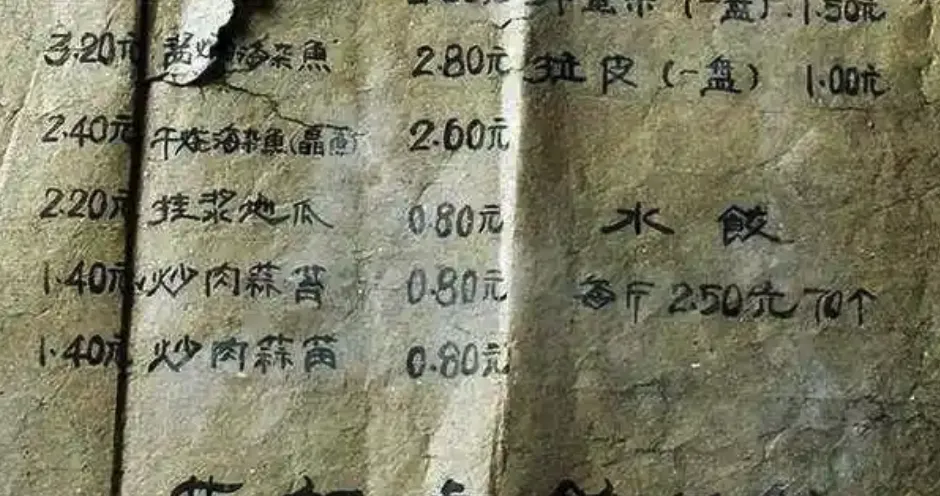 1.50元
3.20元 烧海杂魚 2.80元 拉皮（一盘） 1.00元
2.40元 干烧海杂魚 2.00元
2.20元 挂浆地瓜 0.80元 水餃
1.40元 炒肉蒜苔 0.80元 每斤2.50元70个
1.40元 炒肉蒜苗 0.80元